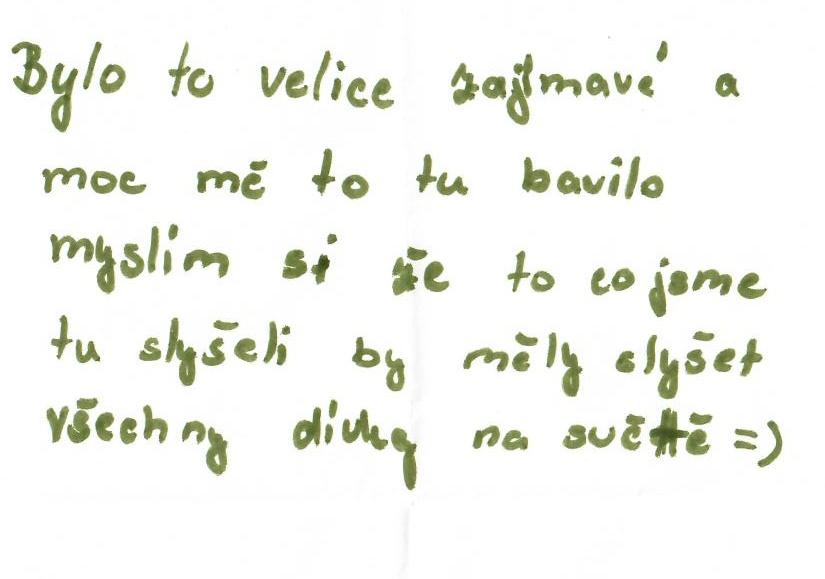 Bylo to velice zajímavé a
moc mě to tu bavilo
myslím si že to co jsme
tu slyšeli by měly slyšet
všechny dívky na světě =)